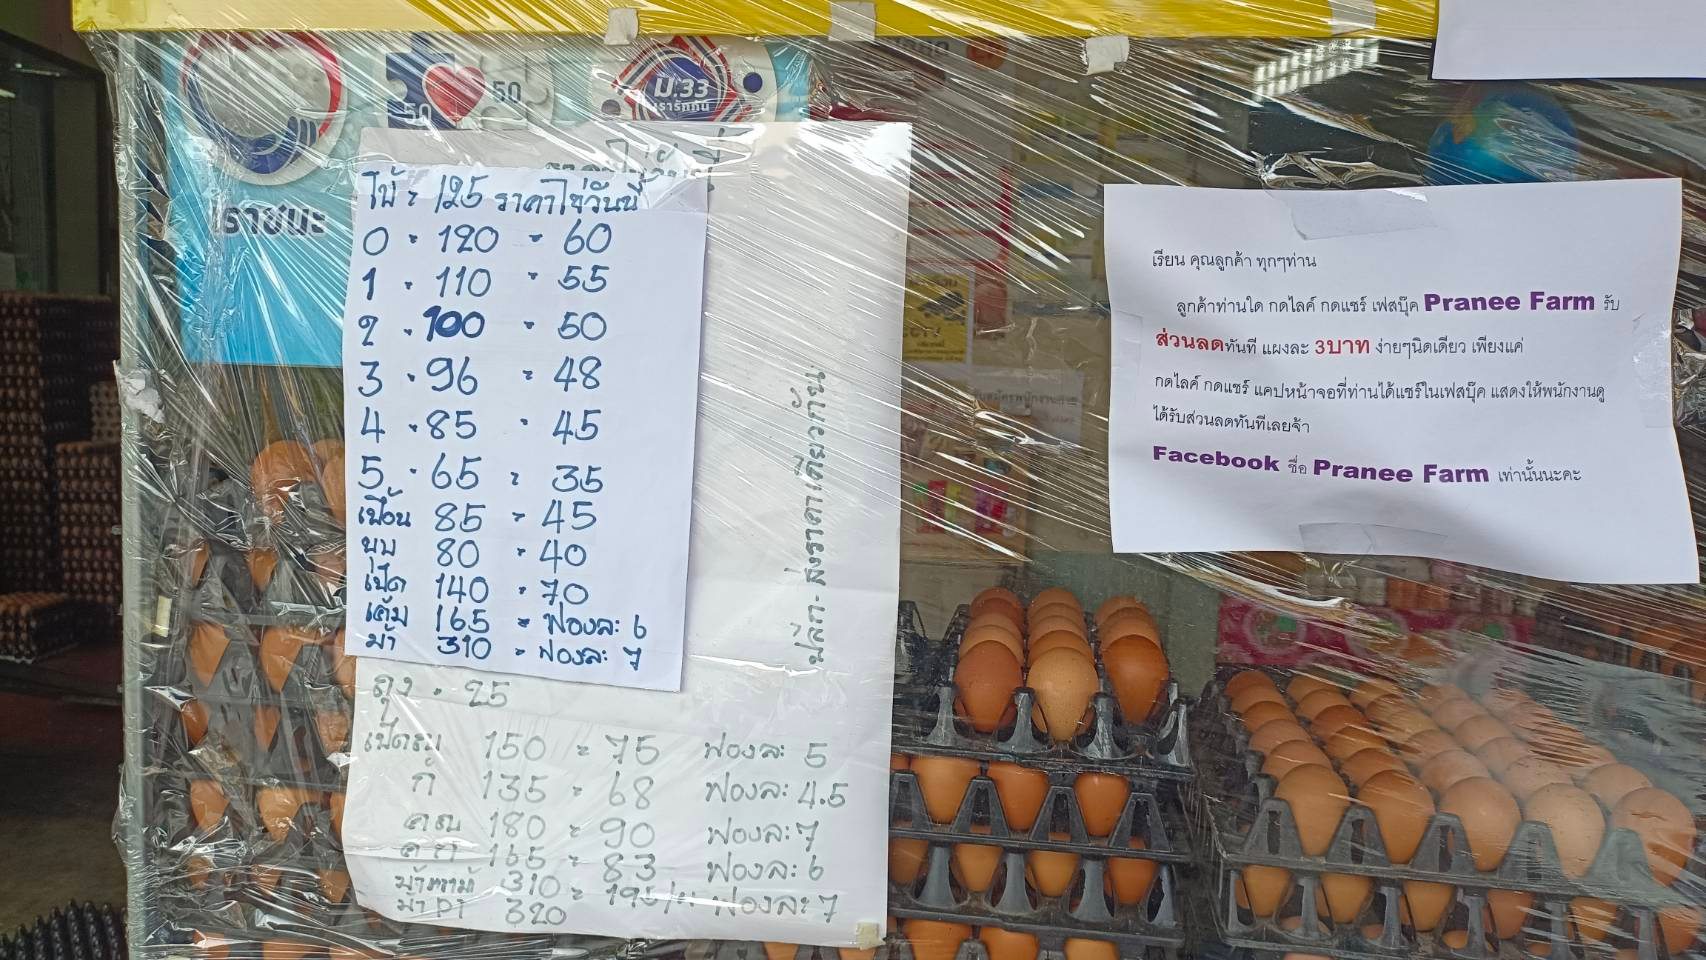 50 50
ม.33
เรารักกัน
เราชนะ
ไข่วันนี้
ใบ้ = 125 ราคาไข่วันนี้
0 = 120 = 60
1 = 110 = 55
2 = 100 = 50
3 = 96 = 48
4 = 85 = 45
5 = 65 = 35
เปื้อน 85 = 45
บุบ 80 = 40
เป็ด 140 = 70
เค็ม 165 = ฟองละ 6
ม้า 310 = ฟองละ 7
ถุง = 25
150 = 75 ฟองละ 5
135 = 68 ฟองละ 4.5
180 = 90 ฟองละ 7
165 = 83 ฟองละ 6
310 = ฟองละ 7
320
ปลีก - ส่งราคาเดียวกัน
เรียน คุณลูกค้า ทุกๆท่าน
ลูกค้าท่านใด กดไลค์ กดแชร์ เฟสบุ๊ค Pranee Farm รับ
ส่วนลดทันที แผงละ 3บาท ง่ายๆนิดเดียว เพียงแค่
กดไลค์ กดแชร์ แคปหน้าจอที่ท่านได้แชร์ในเฟสบุ๊ค แสดงให้พนักงานดู
ได้รับส่วนลดทันทีเลยจ้า
Facebook ชื่อ Pranee Farm เท่านั้นนะคะ